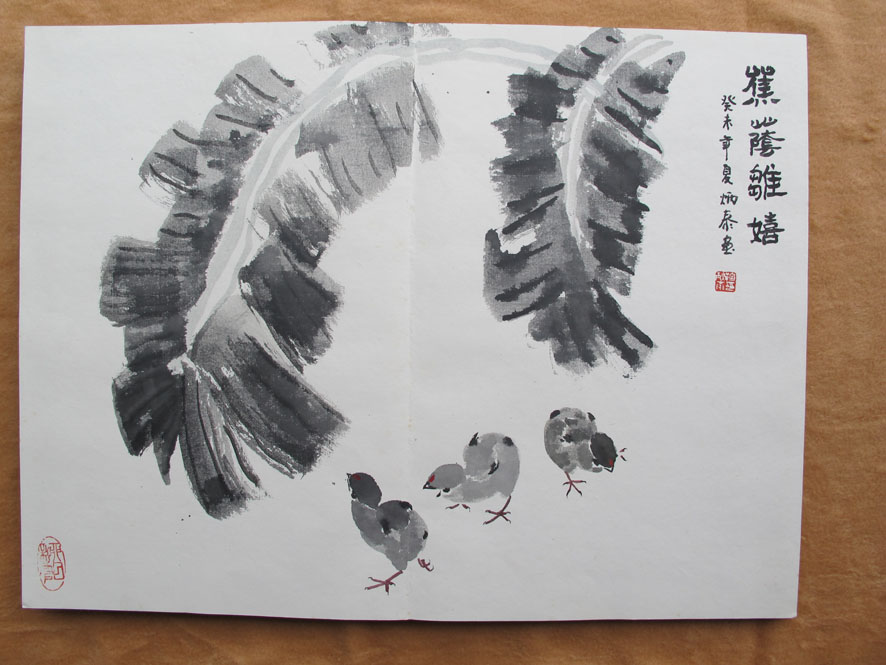 蕉蔭雛嬉
癸未年夏炳泰画